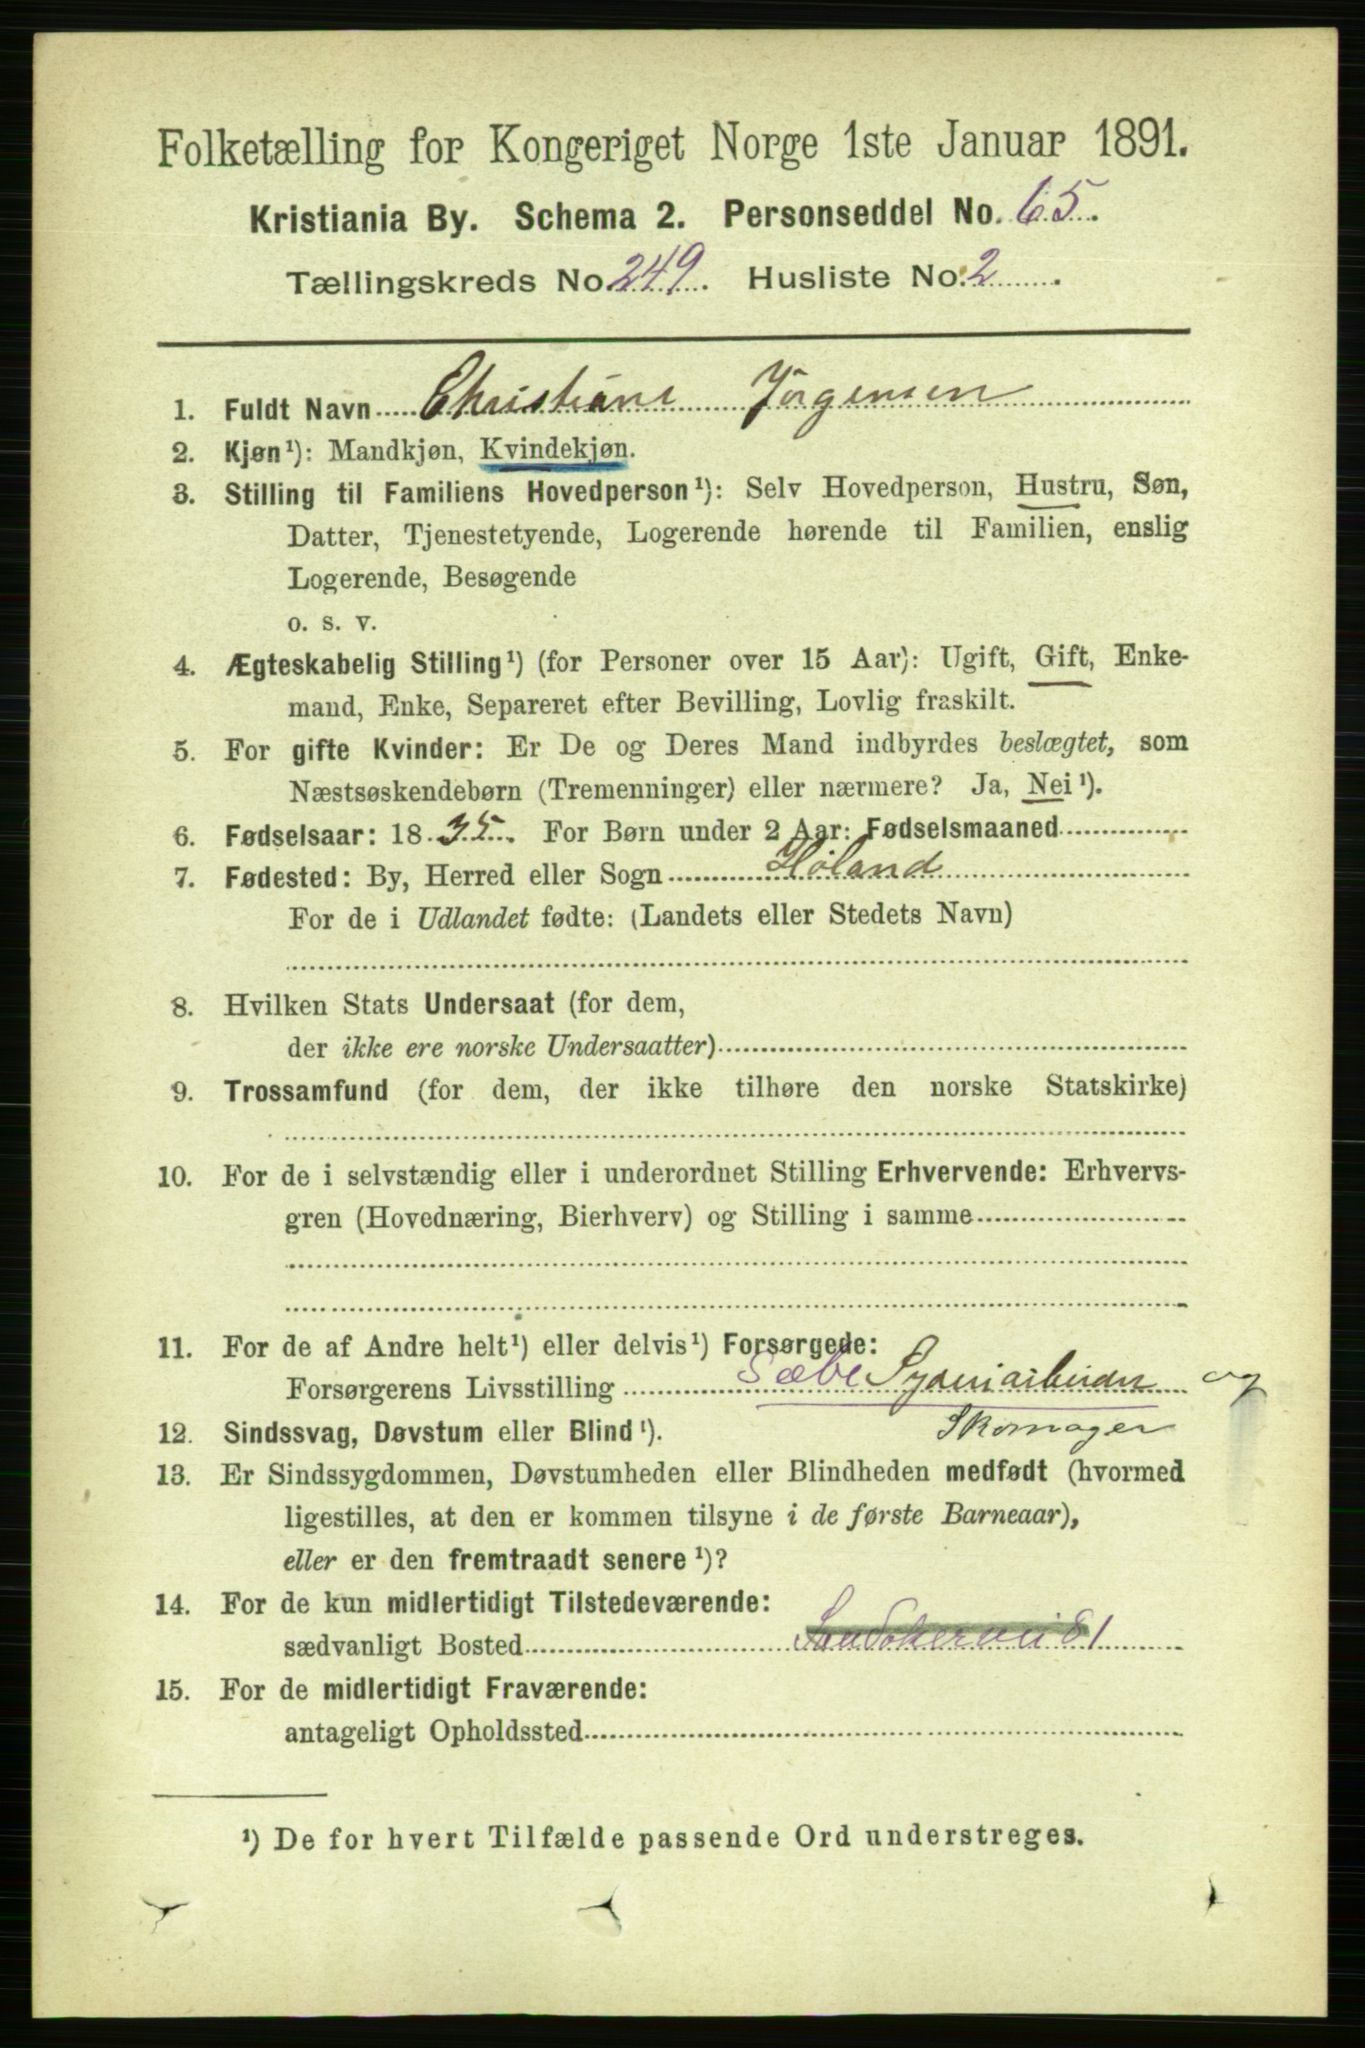 Folketælling for Kongeriget Norge 1ste Januar 1891.
Kristiania By. Schema 2. Personseddel No. 65.
Tællingskreds No. 249. Husliste No. 2.
1. Fuldt Navn Christiane Jörgensen
2. Kjøn¹): Mandkjøn, Kvindekjøn.
3. Stilling til Familiens Hovedperson¹): Selv Hovedperson, Hustru, Søn,
Datter, Tjenestetyende, Logerende hørende til Familien, enslig
Logerende, Besøgende
o. s. v.
4. Ægteskabelig Stilling¹) (for Personer over 15 Aar): Ugift, Gift, Enke-
mand, Enke, Separeret efter Bevilling, Lovlig fraskilt.
5. For gifte Kvinder: Er De og Deres Mand indbyrdes beslægtet, som
Næstsøskendebørn (Tremenninger) eller nærmere? Ja, Nei¹).
6. Fødselsaar: 1835. For Børn under 2 Aar: Fødselsmaaned
7. Fødested: By, Herred eller Sogn Höland
For de i Udlandet fødte: (Landets eller Stedets Navn)
8. Hvilken Stats Undersaat (for dem,
der ikke ere norske Undersaatter)
9. Trossamfund (for dem, der ikke tilhøre den norske Statskirke)
10. For de i selvstændig eller i underordnet Stilling Erhvervende: Erhvervs-
gren (Hovednæring, Bierhverv) og Stilling i samme
11. For de af Andre helt¹) eller delvis¹) Forsørgede:
Forsørgerens Livsstilling Sæbe og
Skomager
12. Sindssvag, Døvstum eller Blind¹).
13. Er Sindssygdommen, Døvstumheden eller Blindheden medfødt (hvormed
ligestilles, at den er kommen tilsyne i de første Barneaar),
eller er den fremtraadt senere¹)?
14. For de kun midlertidigt Tilstedeværende:
sædvanligt Bosted 81
15. For de midlertidigt Fraværende:
antageligt Opholdssted
¹) De for hvert Tilfælde passende Ord understreges.